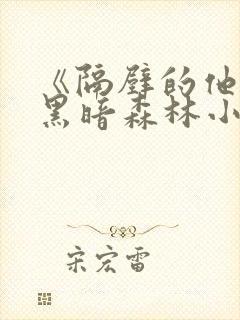 《隔壁的他
黑暗森林小
宋宏雷